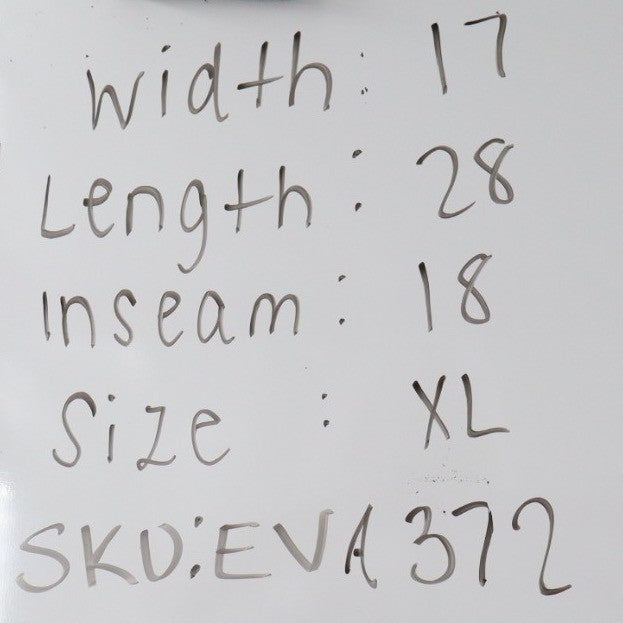 Width: 17
Length: 28
Inseam: 18
Size : XL
SKU:EVA 372